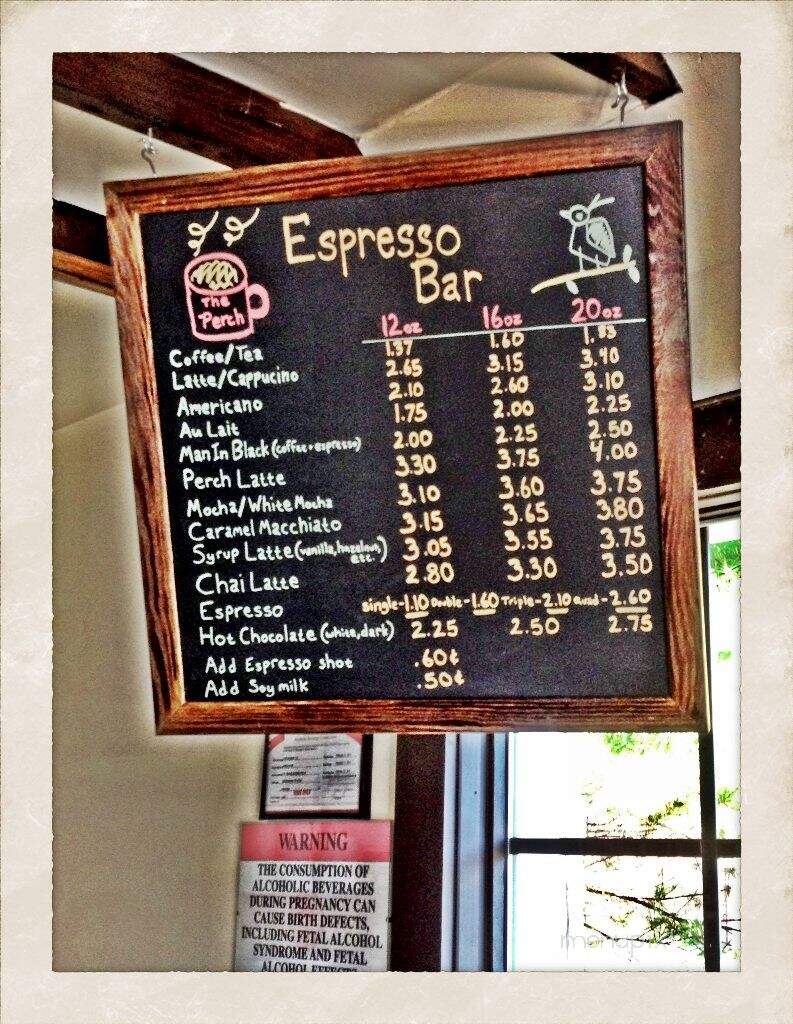 Espresso
Bar
The
Perch
12oz 16oz 20oz
Coffee/Tea 1.37 1.60 1.83
Latte/Cappucino 2.65 3.15 3.40
Americano 2.10 2.60 3.10
Au Lait 1.75 2.00 2.25
Man In Black (coffee+espresso) 2.00 2.25 2.50
Perch Latte 3.30 3.75 4.00
Mocha/White Mocha 3.10 3.60 3.75
Caramel Macchiato 3.15 3.65 3.80
Syrup Latte (vanilla, hazelnut, etc.) 3.05 3.55 3.75
Chai Latte 2.80 3.30 3.50
Espresso single-1.10 Double-1.60 Triple-2.10 Quad-2.60
Hot Chocolate (white, dark) 2.25 2.50 2.75
Add Espresso shot .60¢
Add Soy milk .50¢
WARNING
THE CONSUMPTION OF
ALCOHOLIC BEVERAGES
DURING PREGNANCY CAN
CAUSE BIRTH DEFECTS,
INCLUDING FETAL ALCOHOL
SYNDROME AND FETAL
ALCOHOL EFFECTS